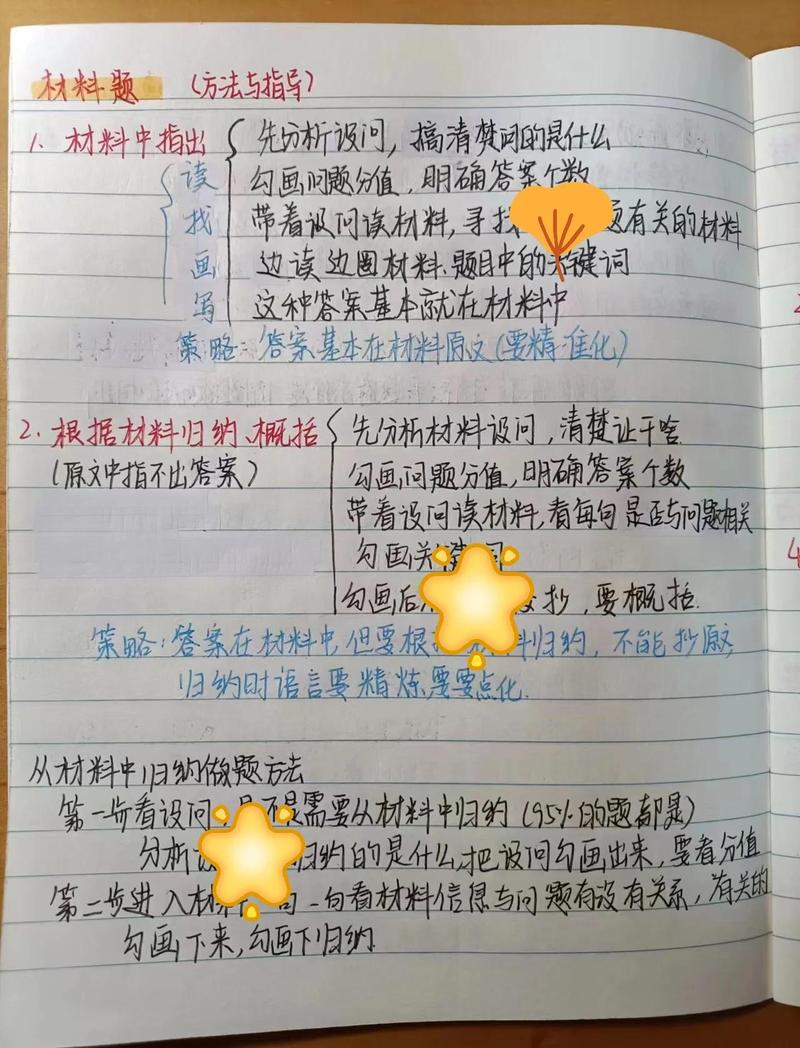 材料题 (方法与指导)
1. 材料中指出 先分析设问，搞清楚问的是什么
读 勾画问题分值，明确答案个数
找 带着设问读材料，寻找 有关的材料
画 边读边圈材料、题目中的关键词
写 这种答案基本就在材料中
策略：答案基本在材料原文(要精准化)
2. 根据材料归纳、概括 先分析材料设问，清楚让干啥
(原文中指不出答案) 勾画问题分值，明确答案个数
带着设问读材料，看每句是否与问题相关
勾画关
勾画后 抄，要概括.
策略：答案在材料中，但要根 料归纳，不能抄原文
归纳时语言要精炼，要要点化.
从材料中归纳做题方法
第一步看设问， 不是需要从材料中归纳(95%的题都是)
分析 归纳的是什么，把设问勾画出来，要看分值
第二步进入材 句一句看材料信息与问题有没有关系，有关的
勾画下来，勾画下归纳